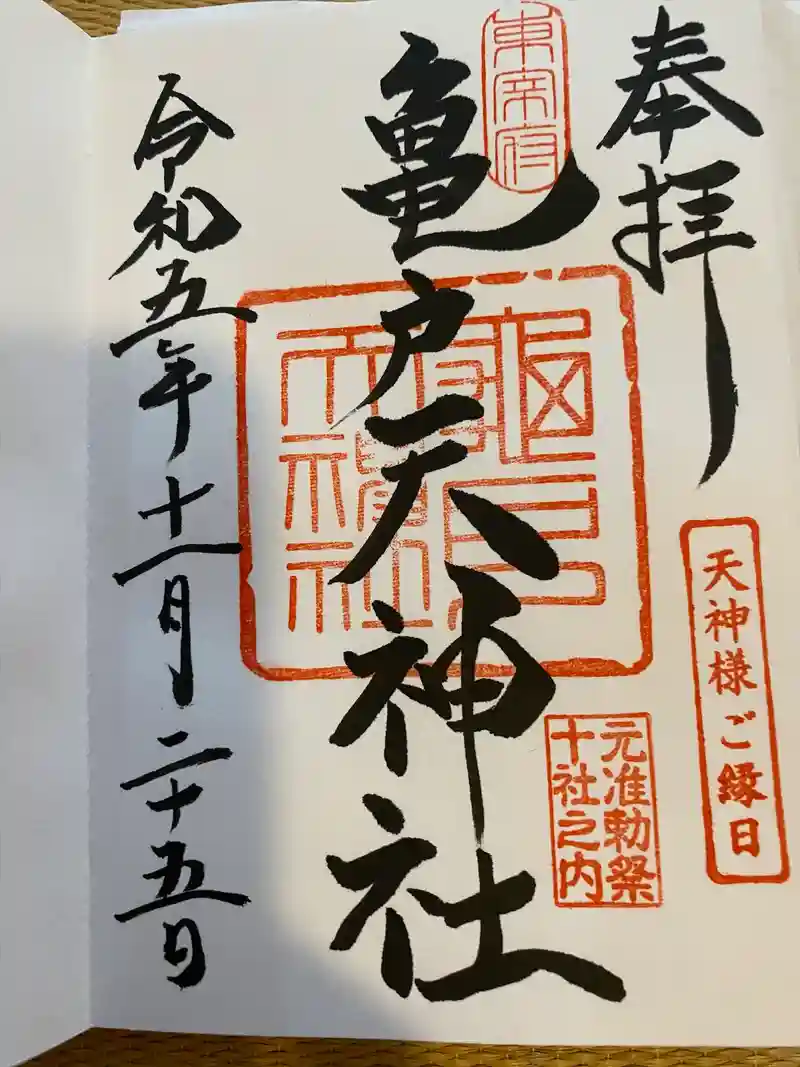 奉拝
天神様ご縁日
東宰府
亀戸天神社
元准勅祭
十社之内
龜戸
天満社
令和五年十一月二十五日